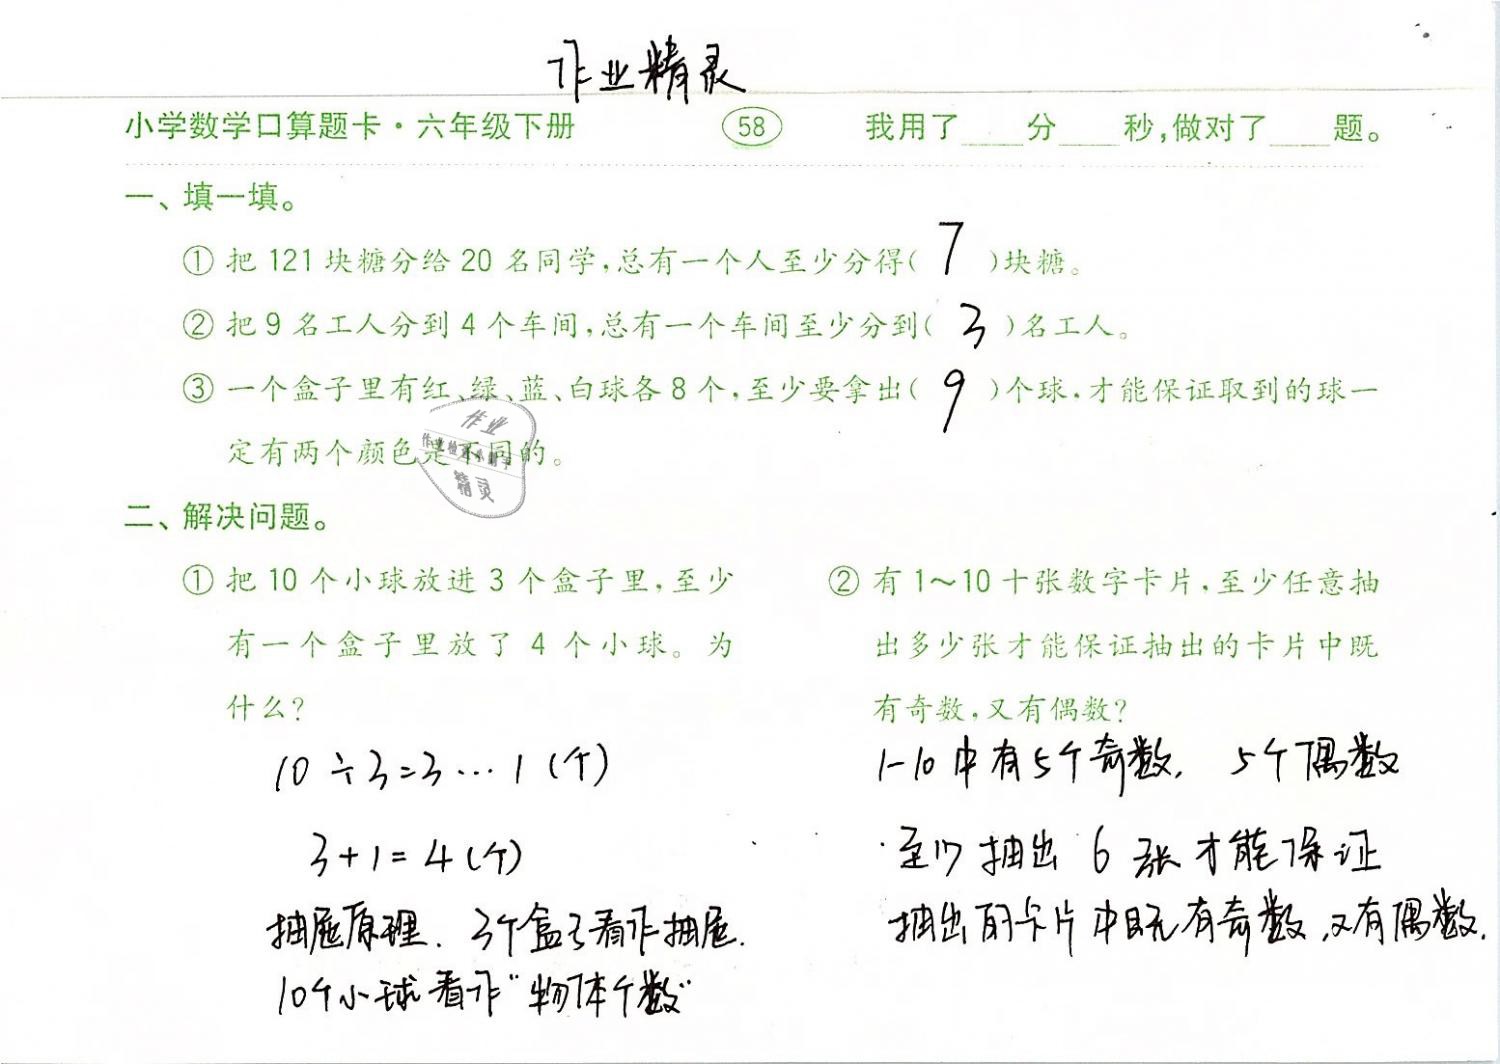 作业精灵
小学数学口算题卡·六年级下册 58 我用了____分____秒,做对了____题。
一、填一填。
① 把 121 块糖分给 20 名同学,总有一个人至少分得( 7 )块糖。
② 把 9 名工人分到 4 个车间,总有一个车间至少分到( 3 )名工人。
③ 一个盒子里有红、绿、蓝、白球各 8 个,至少要拿出( 9 )个球,才能保证取到的球一
定有两个颜色是不同的。
作业
作业检查小助手
精灵
二、解决问题。
① 把 10 个小球放进 3 个盒子里,至少
有一个盒子里放了 4 个小球。为
什么?
10÷3=3…1(个)
3+1=4(个)
抽屉原理.3个盒子看作抽屉.
10个小球看作“物体个数”
② 有 1～10 十张数字卡片,至少任意抽
出多少张才能保证抽出的卡片中既
有奇数,又有偶数?
1-10中有5个奇数, 5个偶数
至少抽出6张才能保证
抽出的卡片中既有奇数,又有偶数.